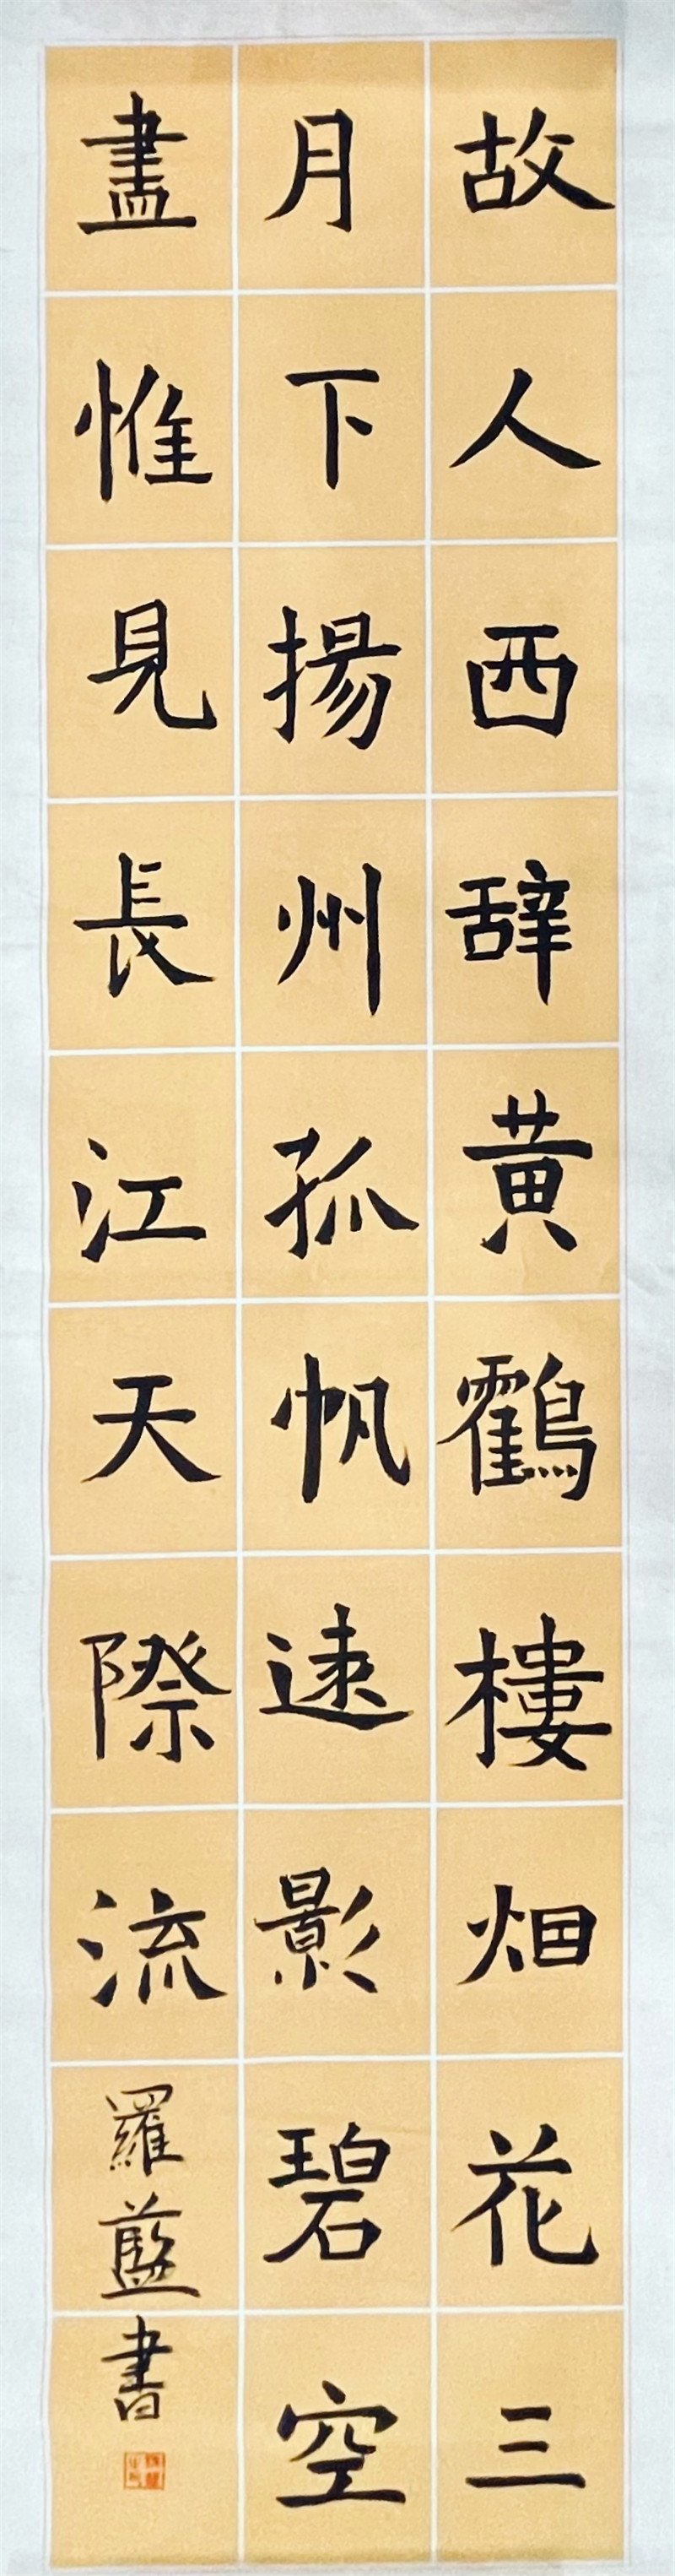 故人西辞黄鶴樓畑花三
月下揚州孤帆逺影碧空
盡惟見長江天際流羅藍書